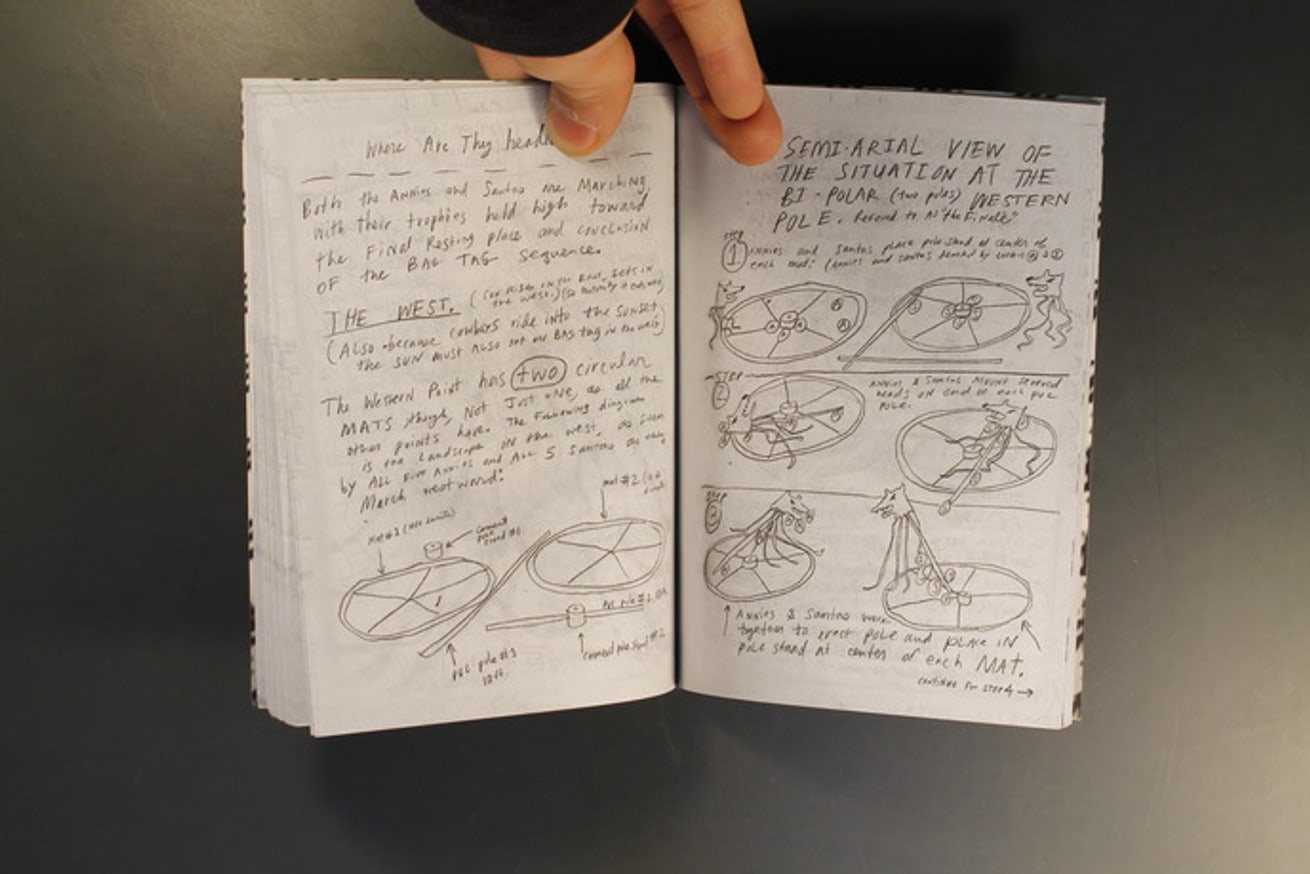 Where Are They heade
Both the Annies and Santas are Marching
with their trophies held high toward
the Final Resting place and conclusion
OF the BAG TAG sequence.
THE WEST. (Sun rises in the East, sets in
the west.)
(Also because cowboys ride into the sunset,
the SUN must Also set on BAG tag in the west)
The Western Point has (two) circular
MATS though, Not Just one, as all the
other points have. The Following diagram
is the Landscape in the west, as seen
by ALL Five Annies and ALL 5 Santas as they
March westward:
mat #2
cement
pole
stand #1
PVC pole #2
PVC pole #1
10ft.
cement pole stand #2
SEMI-ARIAL VIEW OF
THE SITUATION AT THE
BI-POLAR (two poles) WESTERN
POLE. Referred to AS "the Finale"
step
1
Annies and Santas place pole stand at center of
each mat. (Annies and santas denoted by circles Ⓐ & Ⓢ)
STEP
2
Annies & Santas mount severed
heads on end of each PVC
POLE.
STEP
3
Annies & Santas work
together to erect pole and place IN
pole stand at center of each MAT.
continue for step 4 →